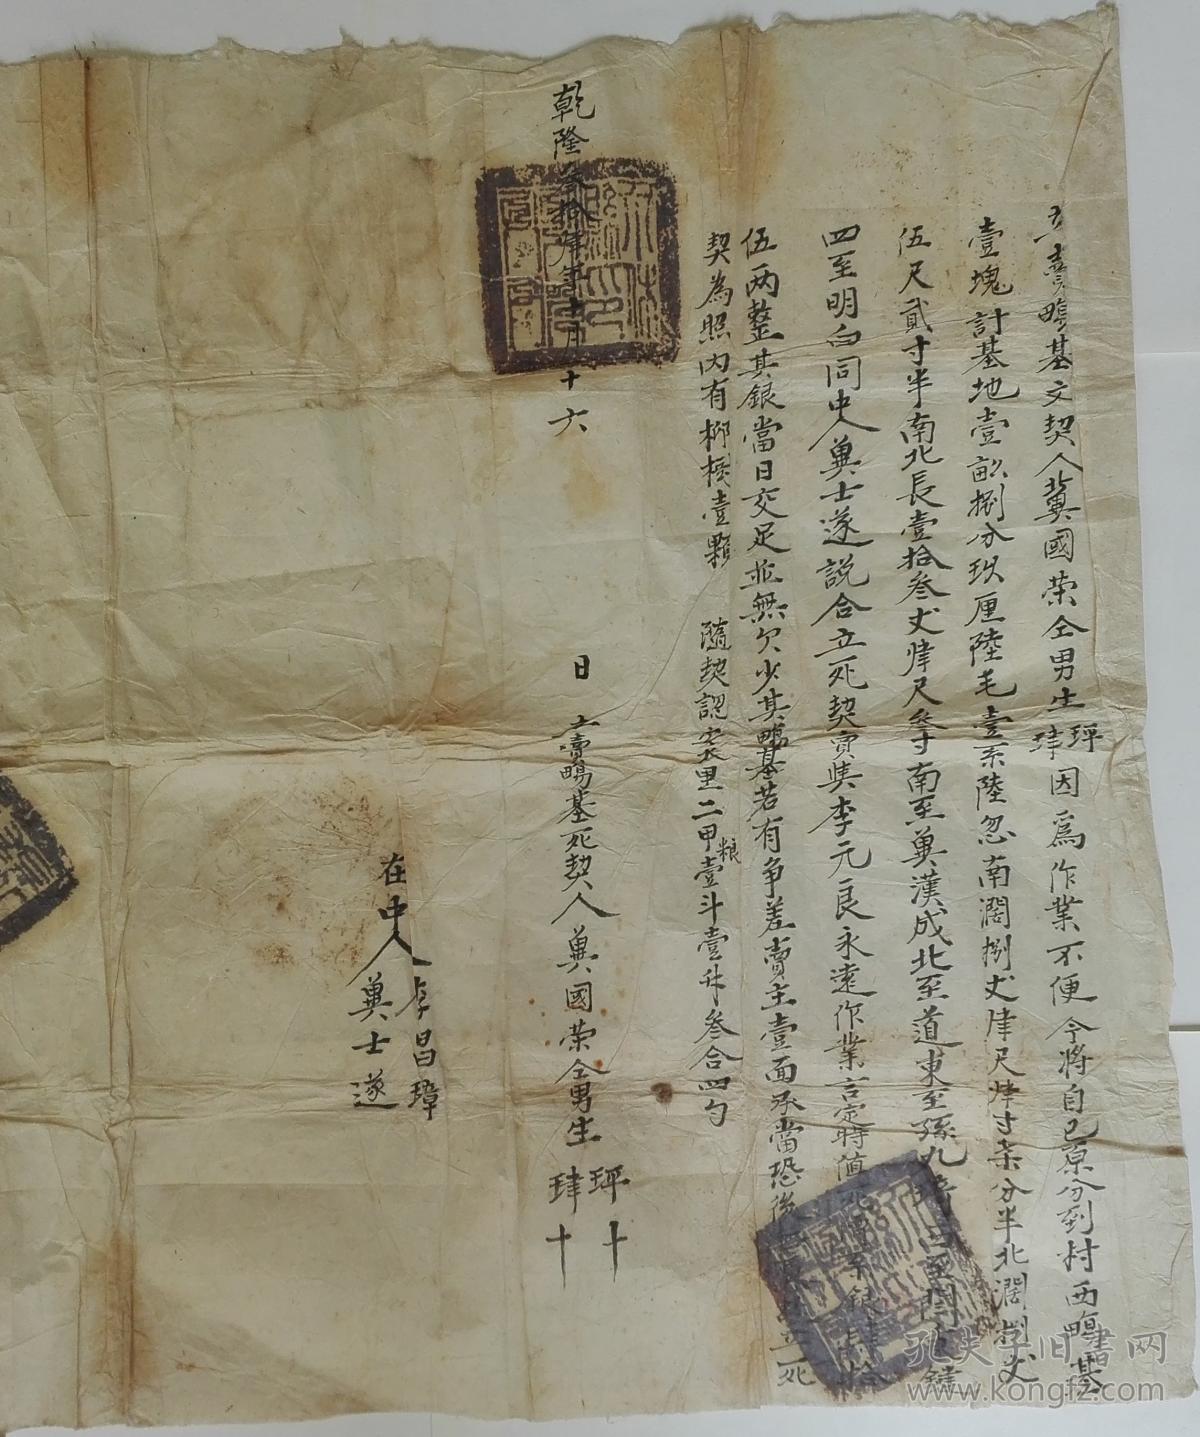 立賣塲基文契人冀國荣仝男生坪珒因爲作業不便今將自己原分到村西塲基
壹塊計基地壹畝捌分玖厘陸毛壹系陸忽南濶捌丈肆尺肆寸柒分半北濶捌丈
伍尺貳寸半南北長壹拾叁丈肆尺叁寸南至冀漢成北至道東至孫九 西至
四至明白同中人冀士遂説合立死契賣與李元良永遠作業言定時值 銀 拾
伍两整其銀當日交足並無欠少其塲基若有争差賣主壹面承當恐後 立死
契為照内有柳樹壹顆 隨契認 里二甲粮壹斗壹升叁合四勺
乾隆叁拾肆年十一月十六
日 立賣塲基死契人冀國荣仝男生坪十珒十
在中人李昌璋
冀士遂
孔夫子旧书网
www.kongfz.com